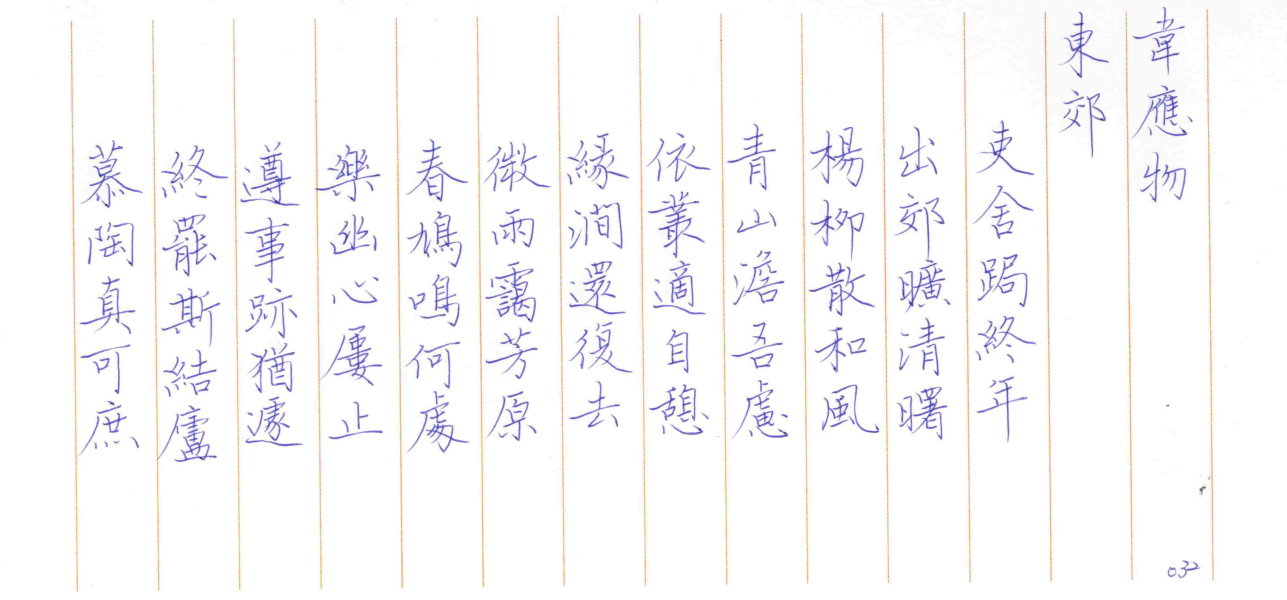 韋應物
東郊
吏舍跼終年
出郊曠清曙
楊柳散和風
青山澹吾慮
依叢適自憩
緣澗還復去
微雨靄芳原
春鳩鳴何處
樂幽心屢止
遵事跡猶遽
終罷斯結廬
慕陶真可庶
032